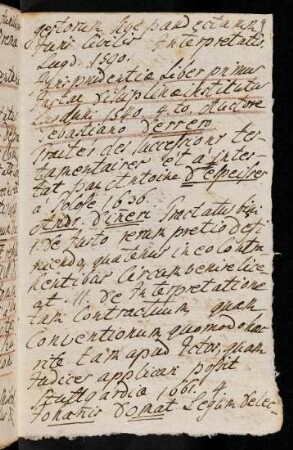 gestorum sive pandectarum
Juris Civilis Interpretatio
Lugd. 1590.
Jurisprudentiæ Liber primus
disciplinæ institutus
Lugduni 1540. 4.to. Auctore
Sebastiano Derrero
Traites des successions tes-
tamentaires et ab intes-
tat par Antoine D'espeisses
a Tolose 1630.
Andr. Dineri Tractatus
I. De Justo rerum pretio defi-
niendo, quatenus in eo contra-
hentibus Circumvenire lice-
at. II. De Interpretatione
tam Contractuum, quam
Conventionum quomodo
tam apud Actor. quam
Judices applicari possit
Stuttgardiæ 1661. 4.
Johannis Domat Legum delec-